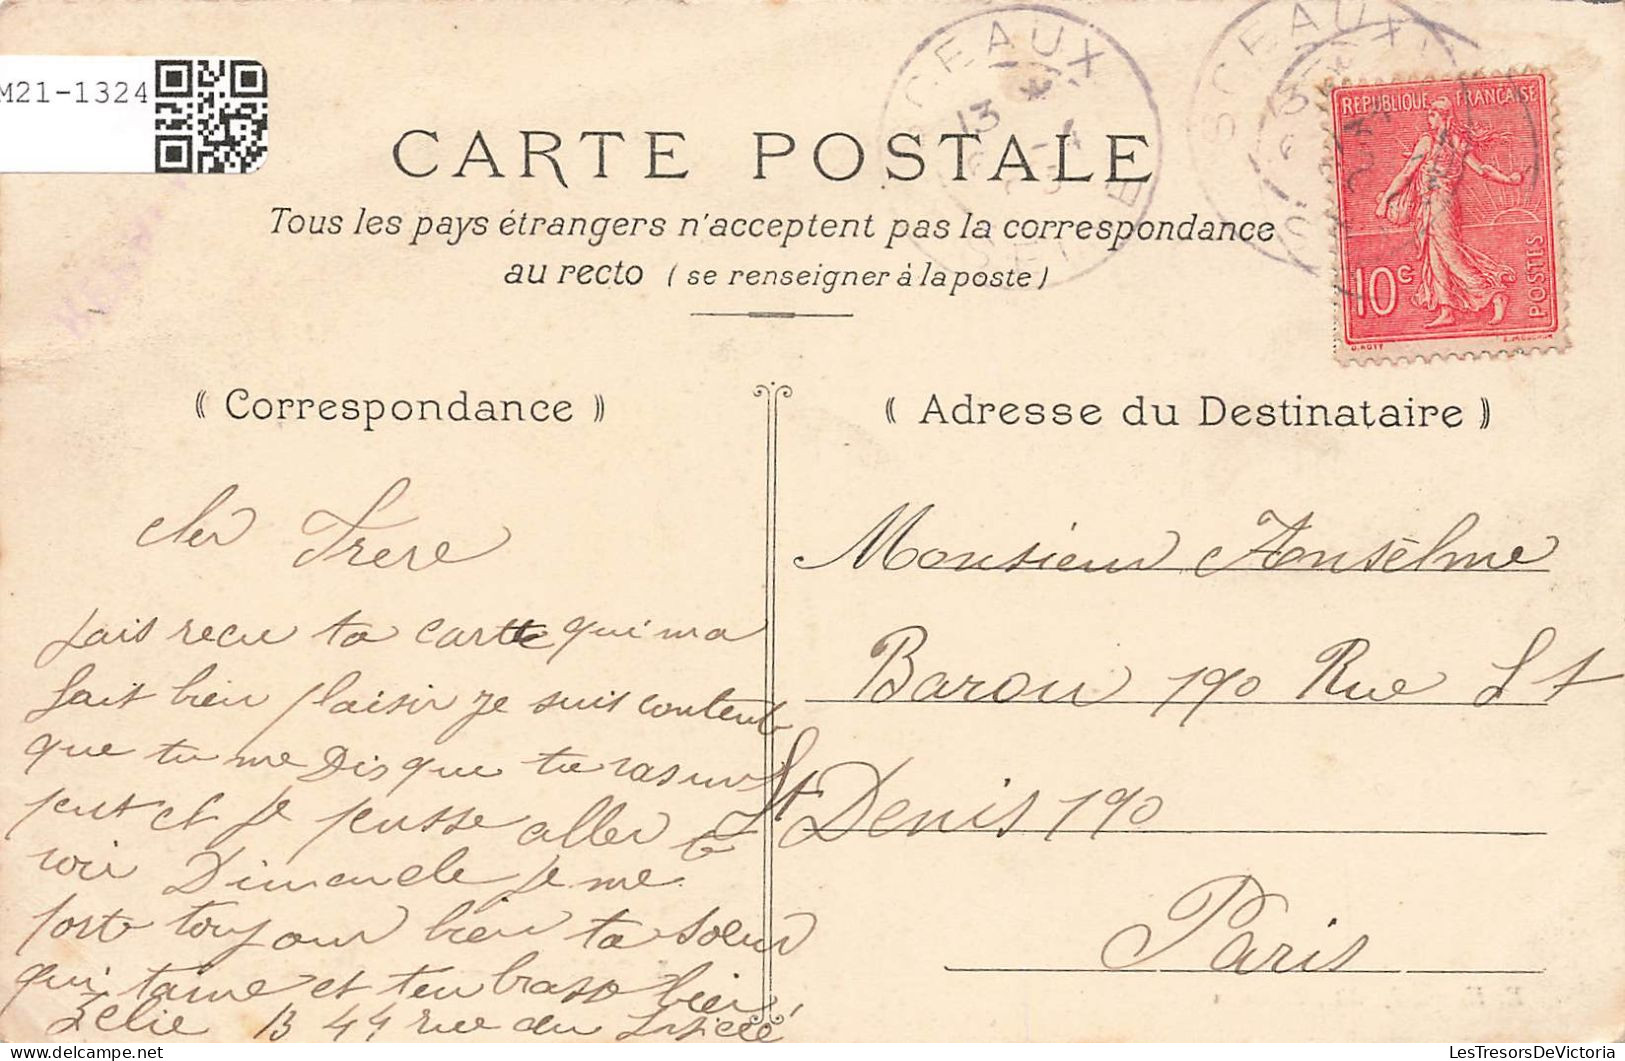 M21-1324
SCEAUX
SCEAUX
REPUBLIQUE FRANÇAISE
10c
POSTES
O. ROTY
CARTE POSTALE
Tous les pays étrangers n'acceptent pas la correspondance
au recto (se renseigner à la poste)
⸨ Correspondance ⸩
cher Frere
jais recu ta carte qui ma
fait bien plaisir je suis contente
que tu me Dis que tu vas un
peut et je pensse aller te
voir Dimanche je me
porte toujour bien ta soeur
qui taime et ten brasse bien
Zelie B 44 rue du Lycée
⸨ Adresse du Destinataire ⸩
Monsieur Anselme
Baron 190 Rue St
St Denis 190
Paris
LesTresorsDeVictoria